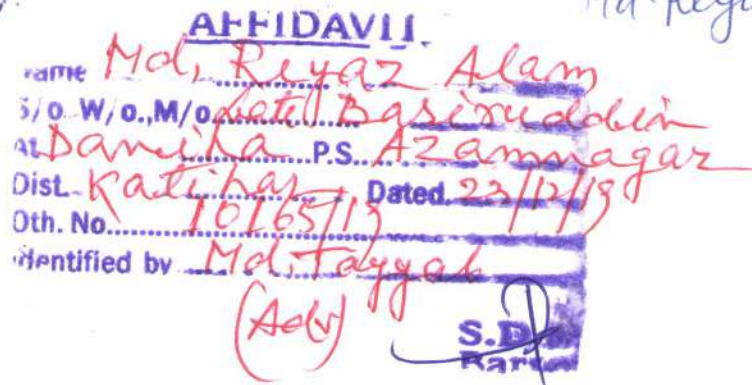 Md. Reyaz
AFFIDAVIT.
Name Md, Reyaz Alam
S/o. W/o., M/o. Late Basiruddin
At. P.S. Azamnagar
Dist. Katihar Dated.
Oth. No. 10165/13
Identified by Md, Tayyab
(Adv)
S.D.